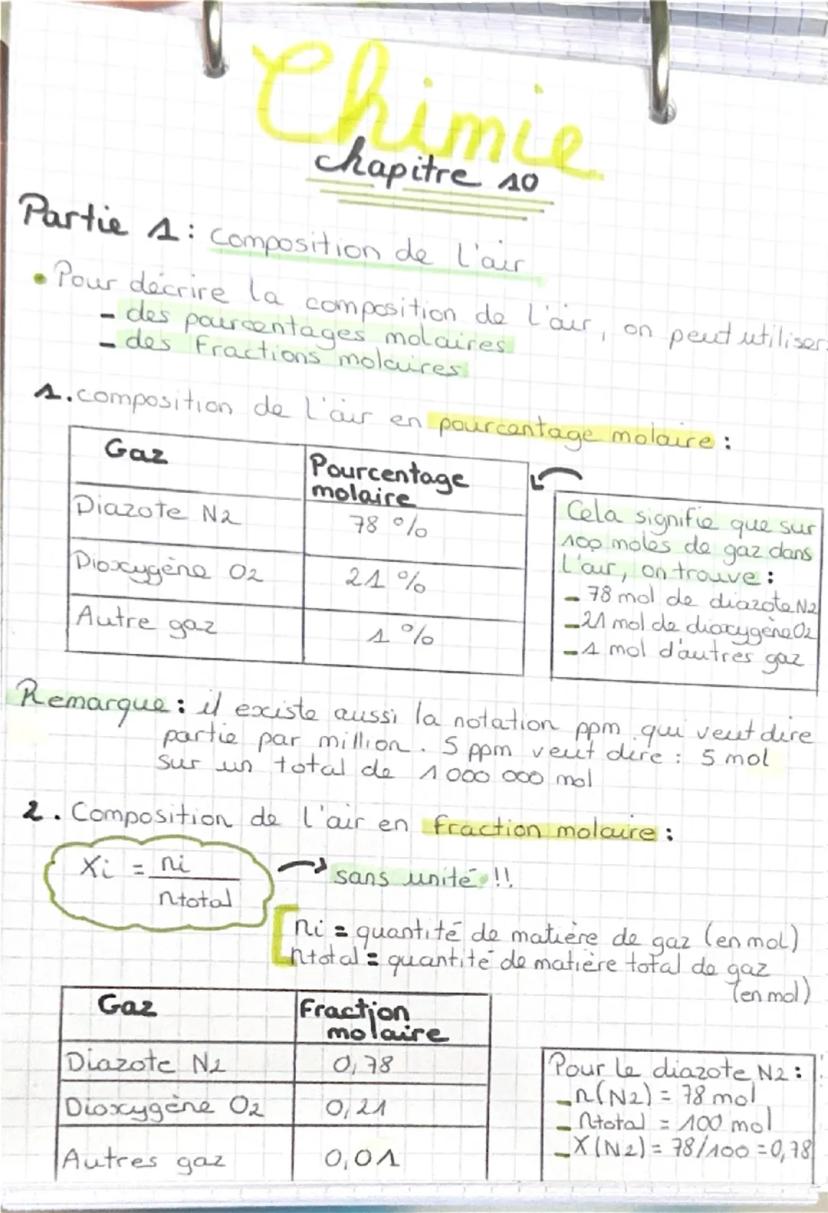 Chimie
chapitre 10
Partie 1 : composition de l'air
• Pour décrire la composition de l'air, on peut utiliser:
- des pourcentages molaires
- des fractions molaires
1. composition de l'air en pourcentage molaire :
Gaz
Pourcentage molaire
Diazote N2
78 %
Dioxygène O2
21 %
Autre gaz
1 %
Cela signifie que sur
100 moles de gaz dans
l'air, on trouve :
- 78 mol de diazote N2
- 21 mol de dioxygène O2
- 1 mol d'autres gaz
Remarque : il existe aussi la notation ppm qui veut dire
partie par million. 5 ppm veut dire : 5 mol
sur un total de 1 000 000 mol
2. Composition de l'air en fraction molaire :
Xi = ni / ntotal
→ sans unité !!
ni = quantité de matière de gaz (en mol)
ntotal = quantité de matière total de gaz
(en mol)
Gaz
Fraction molaire
Diazote N2
0,78
Dioxygène O2
0,21
Autres gaz
0,01
Pour le diazote N2 :
- n(N2) = 78 mol
- ntotal = 100 mol
- X(N2) = 78/100 = 0,78